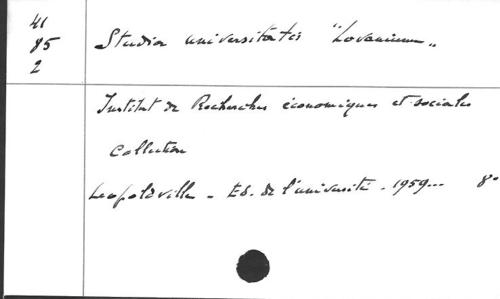 41
85 Studia universitatis "Lovanium"
2
Institut de Recherches économiques et sociales
Collection
Leopoldville - Ed. de l'université - 1959... 8°